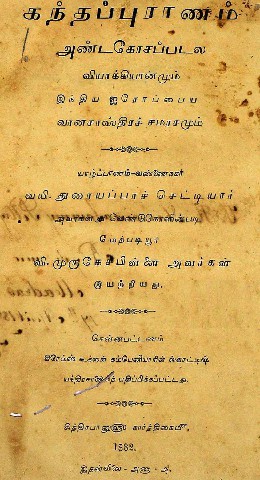 கந்தப்புராணம்
அண்டகோசப்படல
வியாக்கியானமும்
இந்திய ஐரோப்பைய
வானசாஸ்திரச் சமரசமும்
யாழ்ப்பாணம்-வண்ணைநகர்
வயி. துரையப்பாச் செட்டியார்
அவர்கள் வேண்டுகோளின்படி
மேற்படியூர்
வி. முருகேசபிள்ளை அவர்கள்
இயற்றியது.
சென்னபட்டணம்
பதிப்பிக்கப்பட்டது.
சித்திரபானுஹு கார்த்திகைமீ,
1882.